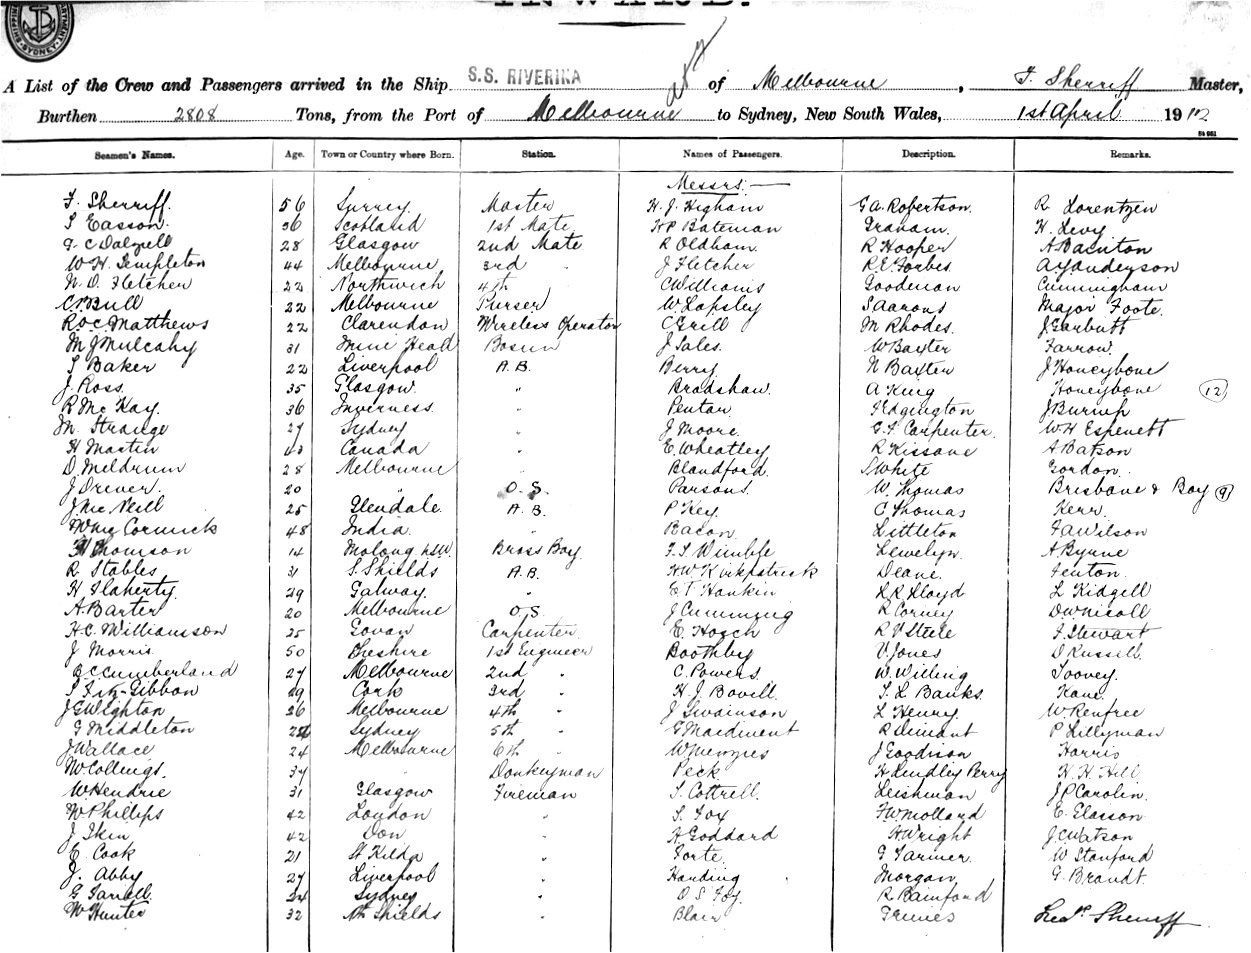 INWARD.
SHIPPING DEPARTMENT SYDNEY
A List of the Crew and Passengers arrived in the Ship S.S. RIVERINA of Melbourne, F. Sherriff Master,
Burthen 2808 Tons, from the Port of Melbourne to Sydney, New South Wales, 1st April 1912
Seamen's Names. Age. Town or Country where Born. Station. Names of Passengers. Description. Remarks.
Messrs:—
F. Sherriff. 56 Surrey Master H. J. Higham G A. Robertson. R Lorentzen
S Easson. 36 Scotland 1st Mate H P Bateman Graham. H. Levy
G C Dalzell 28 Glasgow 2nd Mate R Oldham. R Hooper A Bainton
W. H. Templeton 44 Melbourne 3rd " J Fletcher R. E. Forbes. A Y Anderson
N. O. Fletcher 22 Northwich 4th C Williams Goodman Cunningham
C. M. Bull 22 Melbourne Purser W. Lapsley S Aarons Major Foote.
R O C Matthews 22 Clarendon Wireless Operator C Grill M Rhodes. J Garbutt
M J Mulcahy 31 Mine Head Bosun J Sales. W Baxter Farrow.
S Baker 22 Liverpool A. B. Berry N Baxter J Honeybone
J. Ross. 35 Glasgow. " Bradshaw. A King Honeybone 12
R Mc Kay. 36 Inverness. " Pentar. F Edgington J Burnip
M. Strange 27 Sydney " J Moore. G. F. Carpenter. W H Espenett
H Martin 40 Canada " E. Wheatley R Kissane A Batson
D. Meldrum 28 Melbourne " Blandford. S White Gordon.
J Drever. 20 " O. S. Parsons. W. Thomas Brisbane & Boy 9
J. Mc Neill 25 Glendale. A. B. P Key. C Thomas Kerr.
W Mc Cormick 48 India. " Bacon. Littleton F A Wilson
H Thomson 14 Molong NSW. Brass Boy. F. S Wimble Lewelyn. A Byrne
R Stables 31 S. Shields A. B. H W Kirkpatrick Deane. Fenton.
H Flaherty. 29 Galway. " E T Hankin L R Lloyd L Kidgell
A Barter 20 Melbourne O S. J Cumming R Corney D W Nicoll
H. C. Williamsson 25 Govan Carpenter. E. Hooch R V Steele F. Stewart
J Morris. 50 Cheshire 1st Engineer Boothby V Jones D Russell.
C C Cumberland 27 Melbourne 2nd " C. Powers. W. Willing Toovey.
S Fitz-Gibbon 29 Cork 3rd " H. J. Bovill. T. L Banks. Kane.
J G Wighton 26 Melbourne 4th " J Swainson L Henry. W Renfree
G Middleton Sydney 5th " G Maidment R Diment P Lillyman
J Wallace 24 Melbourne 6th " W Menzies J Goodison Harris
W Collings. 37 " Donkeyman Peck H Lindley Perry H. H. Hill
W Hendrie 31 Glasgow Fireman S. Cottrell. Leishman J P Carolin.
W Phillips 42 London " S. Fox F W Mollard E. Elasson
J Skin 42 Don " A Goddard H Wright J. C Watson
E. Cook 21 St Kilda " Forte. G Farmer. W Stanford
J. Abby 27 Liverpool " Harding Morgan. G. Brandt.
G Farrell. 24 Sydney " O. S. Foy. R Bamford
W Hunter 32 Nth Shields " Blair Grimes Fredk. Sherriff